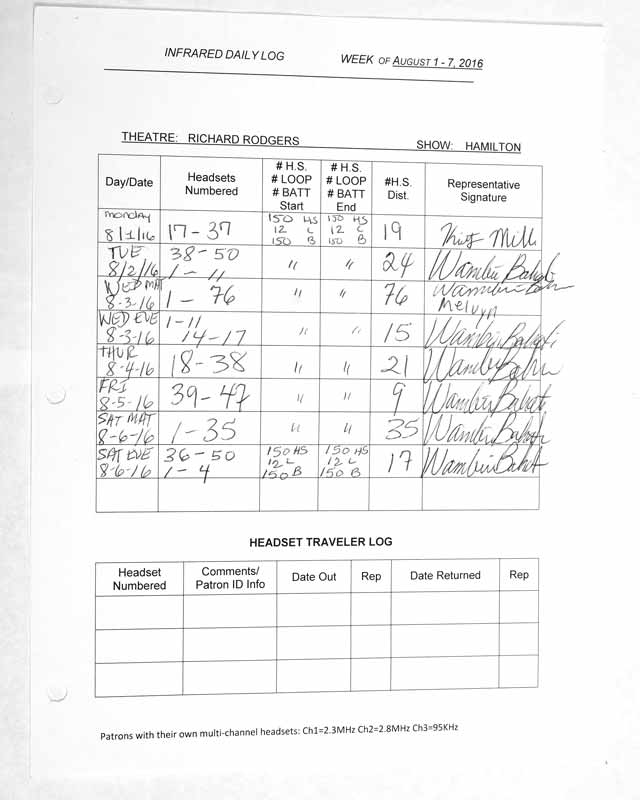 INFRARED DAILY LOG WEEK OF AUGUST 1 - 7, 2016
THEATRE: RICHARD RODGERS SHOW: HAMILTON
Day/Date Headsets Numbered # H.S. # LOOP # BATT Start # H.S. # LOOP # BATT End #H.S. Dist. Representative Signature
monday 8/1/16 17 - 37 150 HS 12 L 150 B 150 HS 12 L 150 B 19
TUE 8/2/16 38 - 50 1 - 11 " " 24 Wambui
WED MAT 8-3-16 1 - 76 " " 76 Melvyn
WED EVE 8-3-16 1-11 14-17 " " 15 Wambui
THUR 8-4-16 18-38 " " 21 Wambui
FRI 8-5-16 39-47 " " 9 Wambui
SAT MAT 8-6-16 1-35 " " 35 Wambui
SAT EVE 8-6-16 36-50 1-4 150 HS 12 L 150 B 150 HS 12 L 150 B 17 Wambui
HEADSET TRAVELER LOG
Headset Numbered Comments/ Patron ID Info Date Out Rep Date Returned Rep
Patrons with their own multi-channel headsets: Ch1=2.3MHz Ch2=2.8MHz Ch3=95KHz